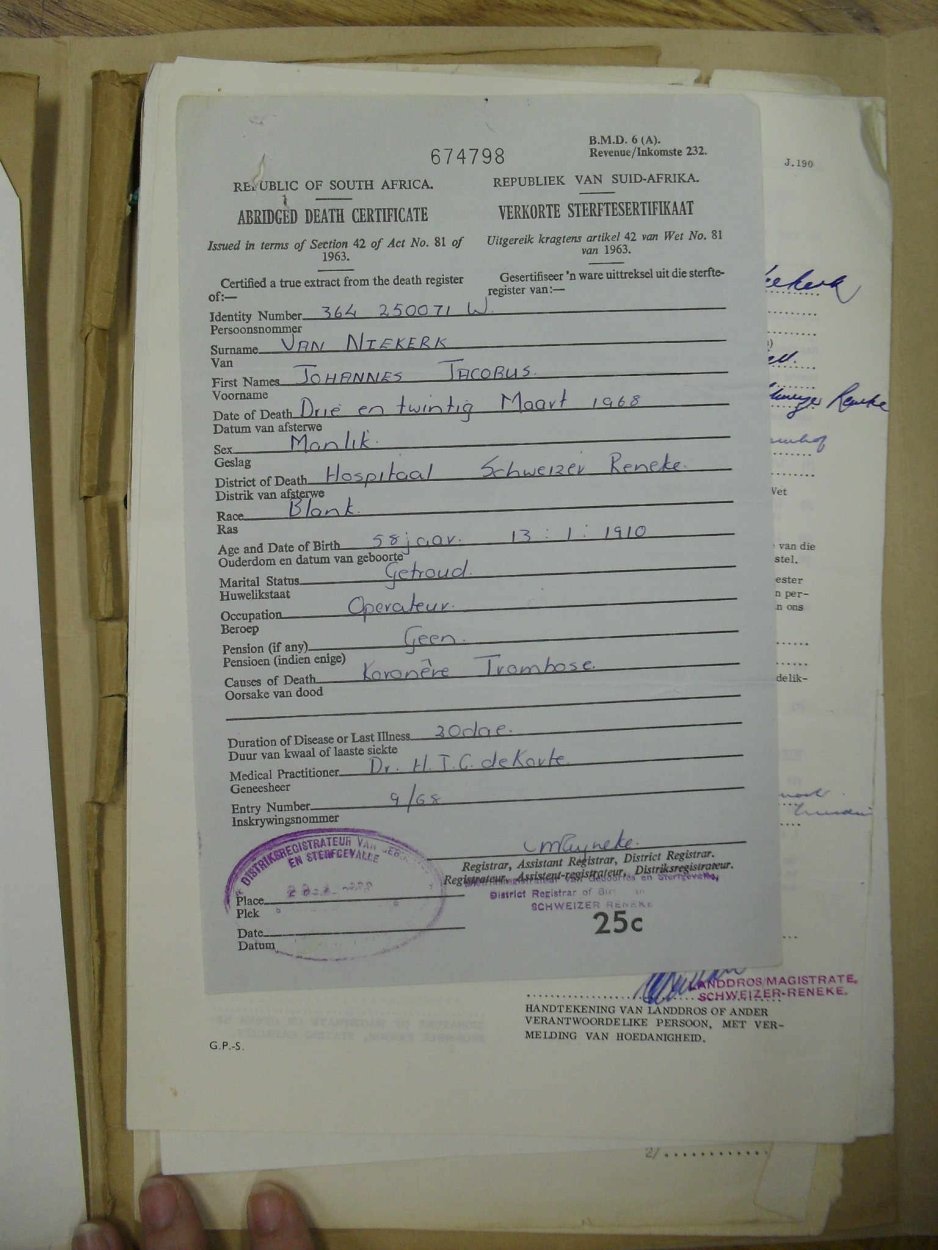 674798
B.M.D. 6 (A).
Revenue/Inkomste 232.
J.190
REPUBLIC OF SOUTH AFRICA.
REPUBLIEK VAN SUID-AFRIKA.
ABRIDGED DEATH CERTIFICATE
VERKORTE STERFTESERTIFIKAAT
Issued in terms of Section 42 of Act No. 81 of
1963.
Uitgereik kragtens artikel 42 van Wet No. 81
van 1963.
Certified a true extract from the death register
of:—
Gesertifiseer 'n ware uittreksel uit die sterfte-
register van:—
Identity Number 364 250071 W
Persoonsnommer
Surname VAN NIEKERK
Van
First Names JOHANNES JACOBUS.
Voorname
Date of Death Drie en twintig Maart 1968
Datum van afsterwe
Sex Manlik.
Geslag
District of Death Hospitaal Schweizer Reneke.
Distrik van afsterwe
Race Blank.
Ras
Age and Date of Birth 58 jaar. 13 : 1 : 1910
Ouderdom en datum van geboorte
Marital Status Getroud.
Huwelikstaat
Occupation Operateur.
Beroep
Pension (if any) Geen.
Pensioen (indien enige)
Causes of Death Koronêre Trombose.
Oorsake van dood
Duration of Disease or Last Illness 30 dae.
Duur van kwaal of laaste siekte
Medical Practitioner Dr. H.T.C. de Korte
Geneesheer
Entry Number 9/68
Inskrywingsnommer
DISTRIKSREGISTRATEUR VAN
EN STERFGEVALLE
Registrar, Assistant Registrar, District Registrar.
Registrateur, Assistent-registrateur, Distriksregistrateur.
en Sterfgevalle,
District Registrar of
SCHWEIZER RENEKE
Place
Plek
Date
Datum
25c
Reneke
Wet
van die
stel.
n ons
delik-
LANDDROS/MAGISTRATE,
SCHWEIZER-RENEKE.
HANDTEKENING VAN LANDDROS OF ANDER
VERANTWOORDELIKE PERSOON, MET VER-
MELDING VAN HOEDANIGHEID.
G.P.-S.
2/